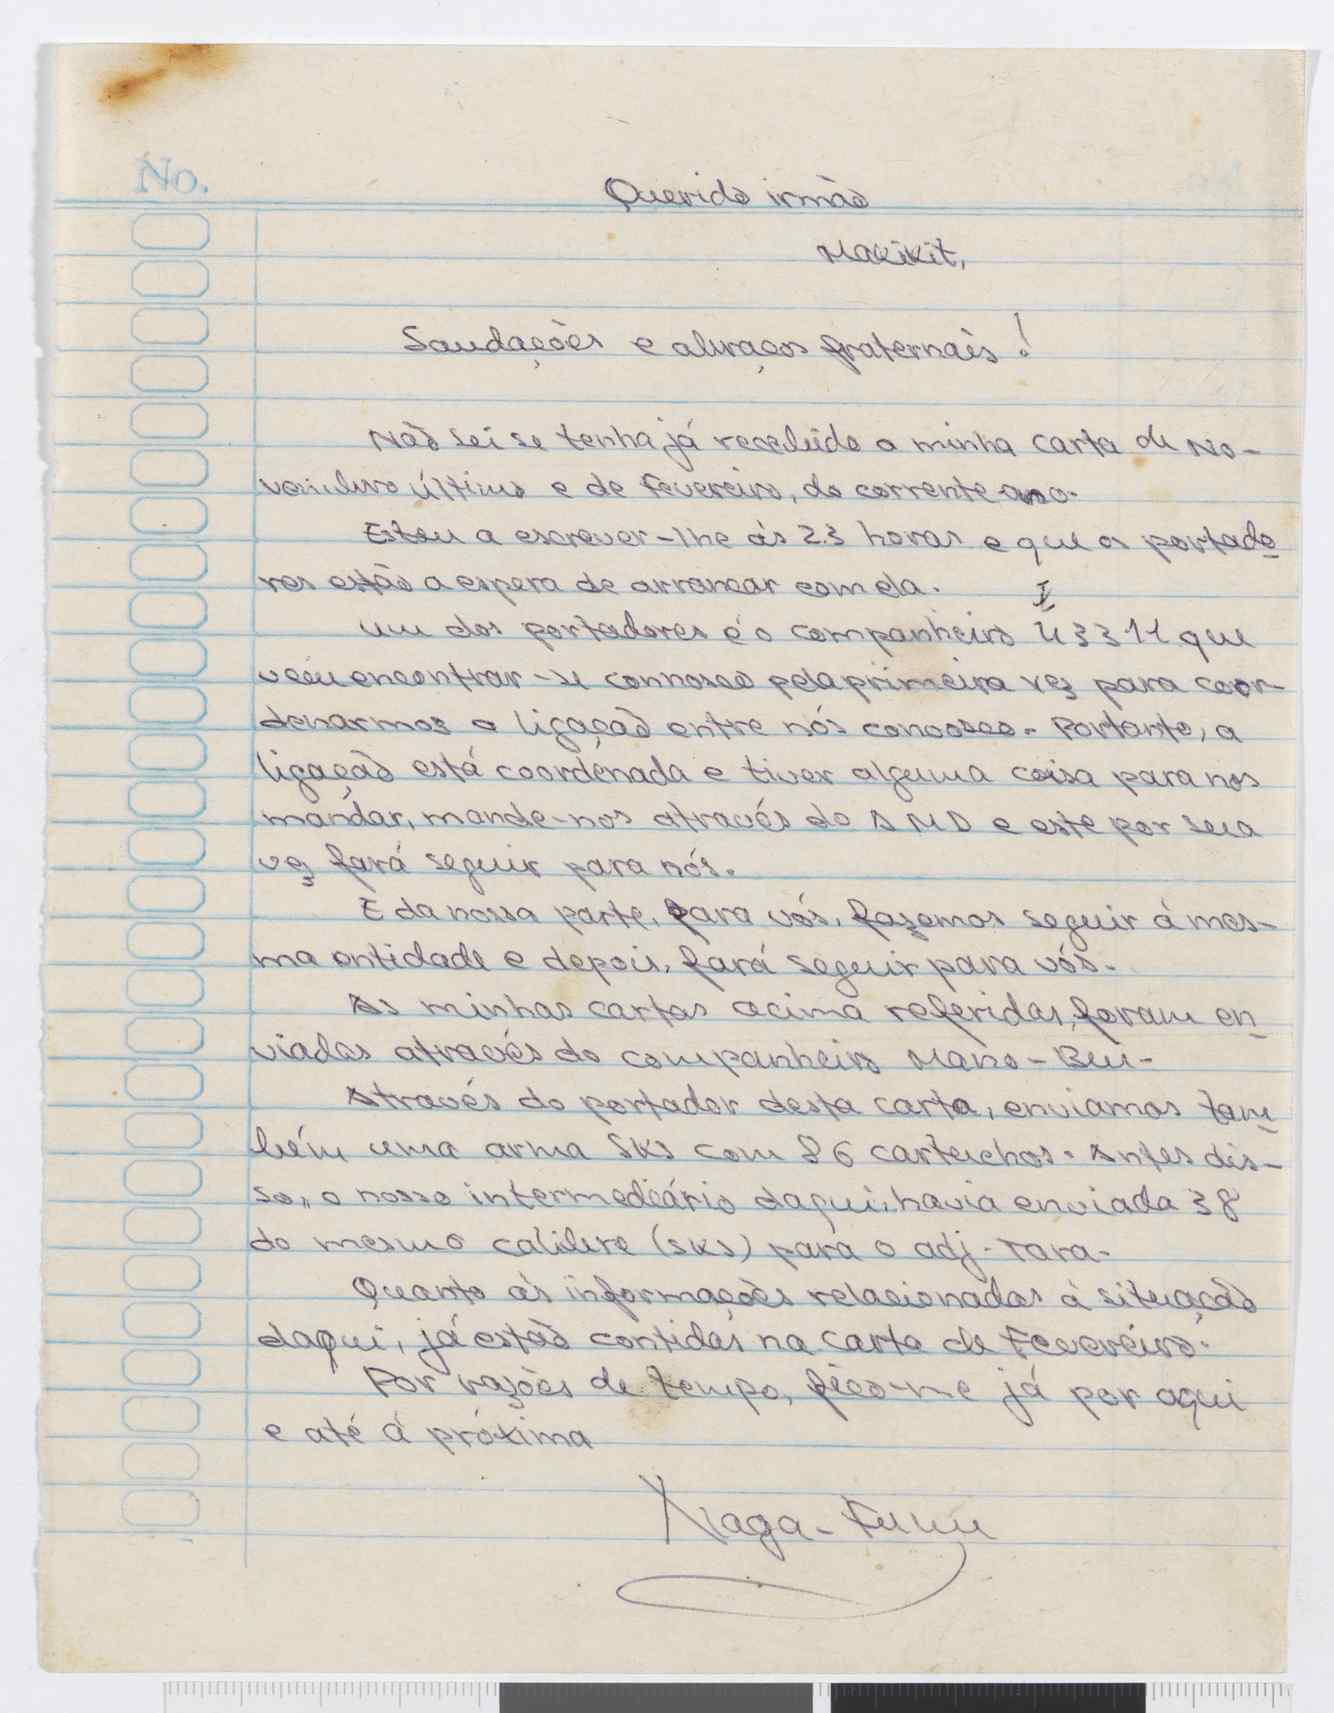 No.
Querido irmão
Makikit,
Saudações e abraços fraternais!
Não sei se tenha já recebido a minha carta de No-
vembro último e de Fevereiro, do corrente ano.
Estou a escrever-lhe às 23 horas e que os portado
res estão a espera de arrancar com ela.
Um dos portadores é o companheiro 3311 que
veiu encontrar-se connosco pela primeira vez para coor-
denarmos a ligação entre nós conosco. Portanto, a
ligação está coordenada e tiver alguma coisa para nos
mandar, mande-nos através do AMD e este por sua
vez fará seguir para nós.
E da nossa parte, para vós, fazemos seguir á mes-
ma entidade e depois, fará seguir para vós.
As minhas cartas acima referidas, foram en
viadas através do companheiro Mano-Bui.
Através do portador desta carta, enviamos tam
bém uma arma SKS com 86 cartuchos. Antes dis-
so, o nosso intermediário daqui, havia enviada 38
do mesmo calibre (SKS) para o adj. Tara.
Quanto às informações relacionadas à situação
daqui, já estão contidas na carta de Fevereiro.
Por razões de tempo, fico-me já por aqui
e até á próxima